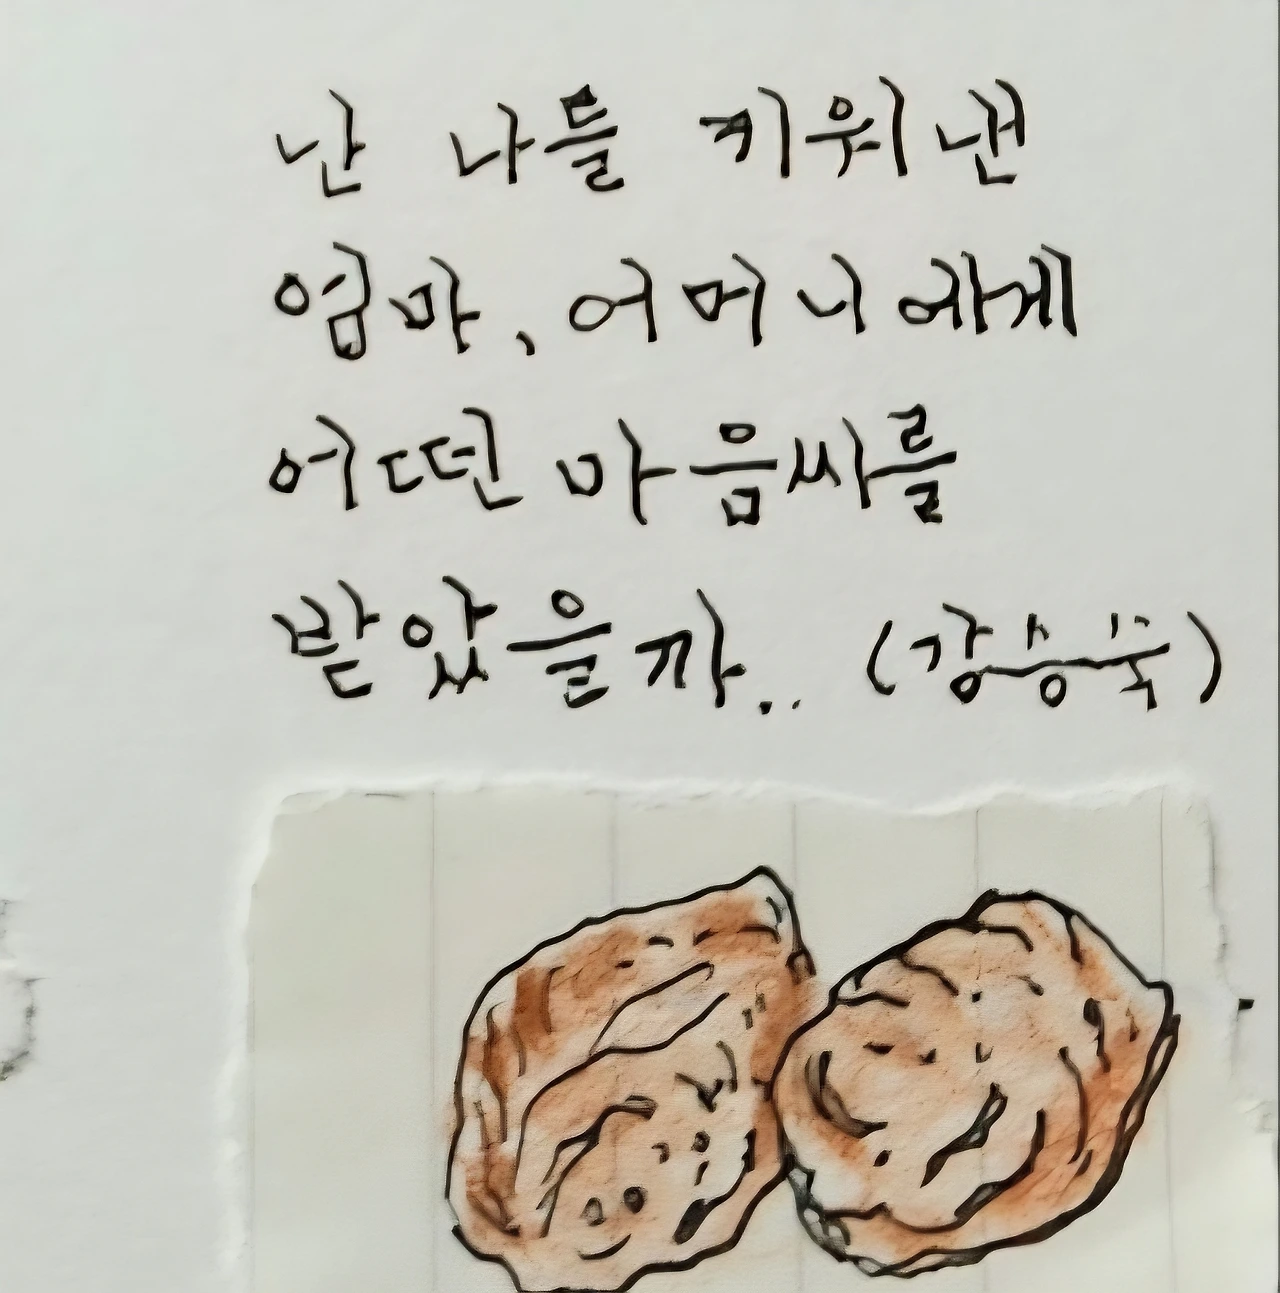 난 나를 키워낸
엄마, 어머니에게
어떤 마음씨를
받았을까.. (강승숙)